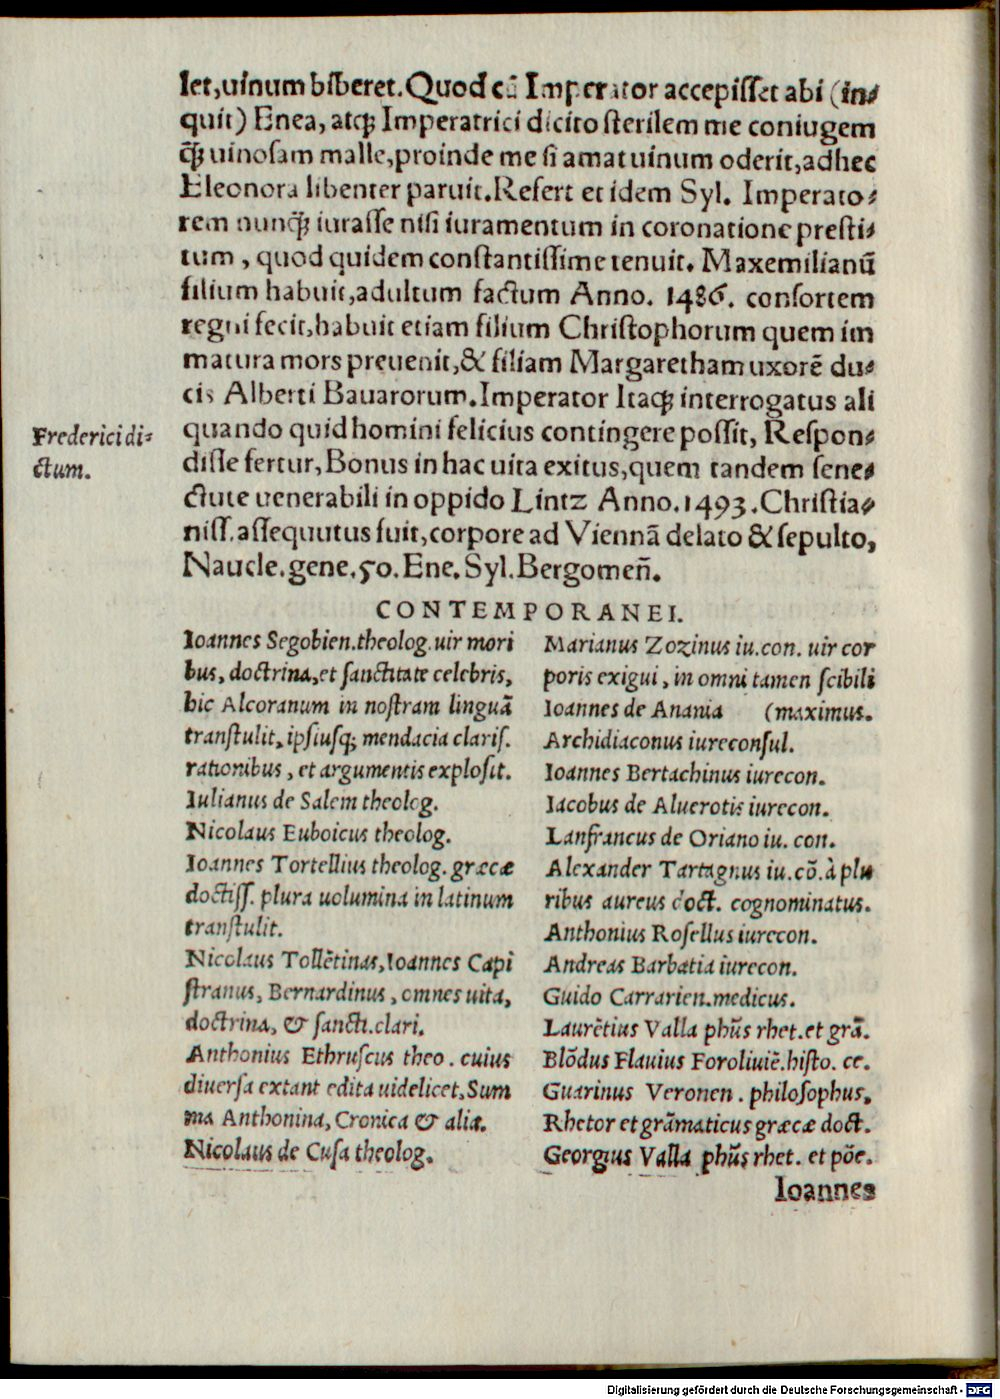 let,uinum biberet.Quod cū Imperator accepisset abi (in⸗
quit) Enea, atq; Imperatrici dicito sterilem me coniugem
q̄; uinosam malle,proinde me si amat uinum oderit,adhec
Eleonora libenter paruit.Refert et idem Syl. Imperato⸗
rem nunq̄; iurasse nisi iuramentum in coronatione presti⸗
tum , quod quidem constantissime tenuit. Maxemilianū
filium habuit,adultum factum Anno. 1486. consortem
regni fecit,habuit etiam filium Christophorum quem im
matura mors preuenit,& filiam Margaretham uxorē du⸗
cis Alberti Bauarorum.Imperator Itaq; interrogatus ali
quando quid homini felicius contingere possit, Respon⸗
disse fertur, Bonus in hac uita exitus,quem tandem sene⸗
ctute uenerabili in oppido Lintz Anno.1493.Christia⸗
niss.assequutus fuit,corpore ad Viennā delato & sepulto,
Naucle.gene.50.Ene.Syl.Bergomen̄.
Frederici di⸗
ctum.
CONTEMPORANEI.
Ioannes Segobien.theolog.uir mori
bus, doctrina,et sanctitate celebris,
hic Alcoranum in nostram linguā
transtulit, ipsiusq; mendacia claris.
rationibus , et argumentis explosit.
Iulianus de Salem theolog.
Nicolaus Euboicus theolog.
Ioannes Tortellius theolog. græcæ
doctiss. plura uolumina in latinum
transtulit.
Nicolaus Tollētinas,Ioannes Capi
stranus, Bernardinus , omnes uita,
doctrina, & sancti.clari.
Anthonius Ethruscus theo . cuius
diuersa extant edita uidelicet, Sum
ma Anthonina, Cronica & alia.
Nicolaus de Cusa theolog.
Marianus Zozinus iu.con. uir cor
poris exigui , in omni tamen scibili
Ioannes de Anania (maximus.
Archidiaconus iureconsul.
Ioannes Bertachinus iurecon.
Iacobus de Aluerotis iurecon.
Lanfrancus de Oriano iu. con.
Alexander Tartagnus iu.cō.à plu
ribus aureus doct. cognominatus.
Anthonius Rosellus iurecon.
Andreas Barbatia iurecon.
Guido Carrarien.medicus.
Laurētius Valla phūs rhet.et grā.
Blōdus Flauius Foroliuiē.histo. ce.
Guarinus Veronen . philosophus,
Rhetor et grāmaticus græcæ doct.
Georgius Valla phūs rhet. et pōe.
Ioannes
Digitalisierung gefördert durch die Deutsche Forschungsgemeinschaft - DFG